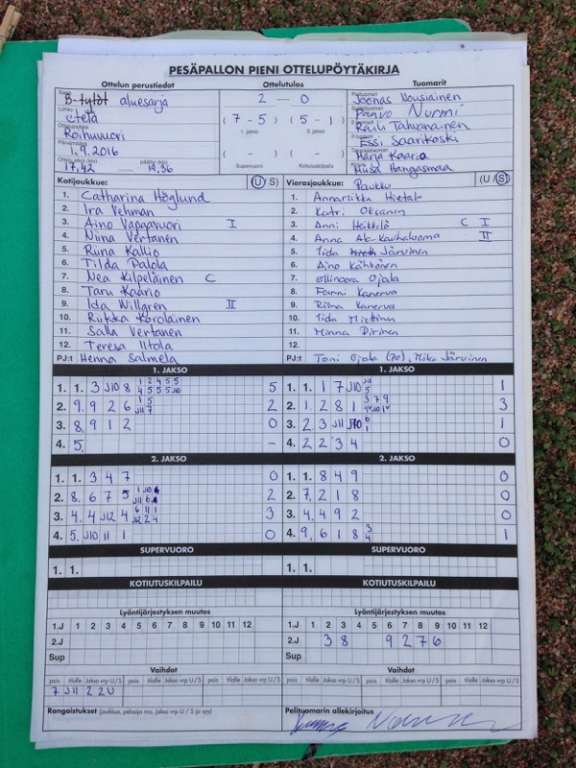 PESÄPALLON PIENI OTTELUPÖYTÄKIRJA
Ottelun perustiedot Ottelutulos Tuomarit
B-tytöt aluesarja 2 – 0 Joonas Vousiainen
Etelä ( 7 - 5 ) ( 5 - 1 ) Paavo Nurmi
Roihuvuori 1. jakso 2. jakso Raili Tahvanainen
1.9.2016 ( - ) ( - ) Essi Saarikoski
17.42 19.36 Supervuoro Kotiutuskilpailu Marja Kaario
Miisa Hangasmaa
Kotijoukkue: (U / S) Vierasjoukkue: Paukku (U / S)
1. Catharina Höglund 1. Annariikka Hietala
2. Ira Vehman 2. Katri Oksanen
3. Aino Vappavuori I 3. Anni Heikkilä C I
4. Niina Vertanen 4. Anna Ala-Kauhaluoma II
5. Riina Kallio 5. Iida Järvinen
6. Tilda Palola 6. Aino Kähkönen
7. Nea Kilpeläinen C 7. Ellinoora Ojala
8. Taru Kaario 8. Fanni Kanerva
9. Ida Willgren II 9. Riina Kanerva
10. Riikka Korolainen 10. Iida Miettinen
11. Salla Vertanen 11. Minna Pirinen
12. Teresa Iltola 12.
PJ:t Henna Salmela PJ:t Toni Ojala (70), Mika Järvinen
1. JAKSO 1. JAKSO
1. 1. 3 J10 8 1 2 4 5 5 5 1. 1. 1 7 J10 1
2. 9 9 2 6 1 5 J11 7 2 2. 1 2 8 1 3 7 9 3
3. 8 9 1 2 0 3. 2 3 J11 J10 1
4. 5. – 4. 2 2 3 4 0
2. JAKSO 2. JAKSO
1. 1. 3 4 7 0 1. 1. 8 4 9 0
2. 8. 6 7 5 2 2. 7 2 1 8 0
3. 4. 4 J12 4 6 11 1 J12 2 4 3 3. 4 4 9 2 0
4. 5. J10 11 1 0 4. 9 6 1 8 3 4 1
SUPERVUORO SUPERVUORO
1. 1. 1. 1.
KOTIUTUSKILPAILU KOTIUTUSKILPAILU
Lyöntijärjestyksen muutos Lyöntijärjestyksen muutos
1.J 1 2 3 4 5 6 7 8 9 10 11 12 1.J 1 2 3 4 5 6 7 8 9 10 11 12
2.J 2.J 3 8 9 2 7 6
Sup Sup
Vaihdot Vaihdot
pois tilalle Jakso vp U / S pois tilalle Jakso vp U / S pois tilalle Jakso vp U / S pois tilalle Jakso vp U / S
7 J11 2 2U
Rangaistukset Pelituomarin allekirjoitus